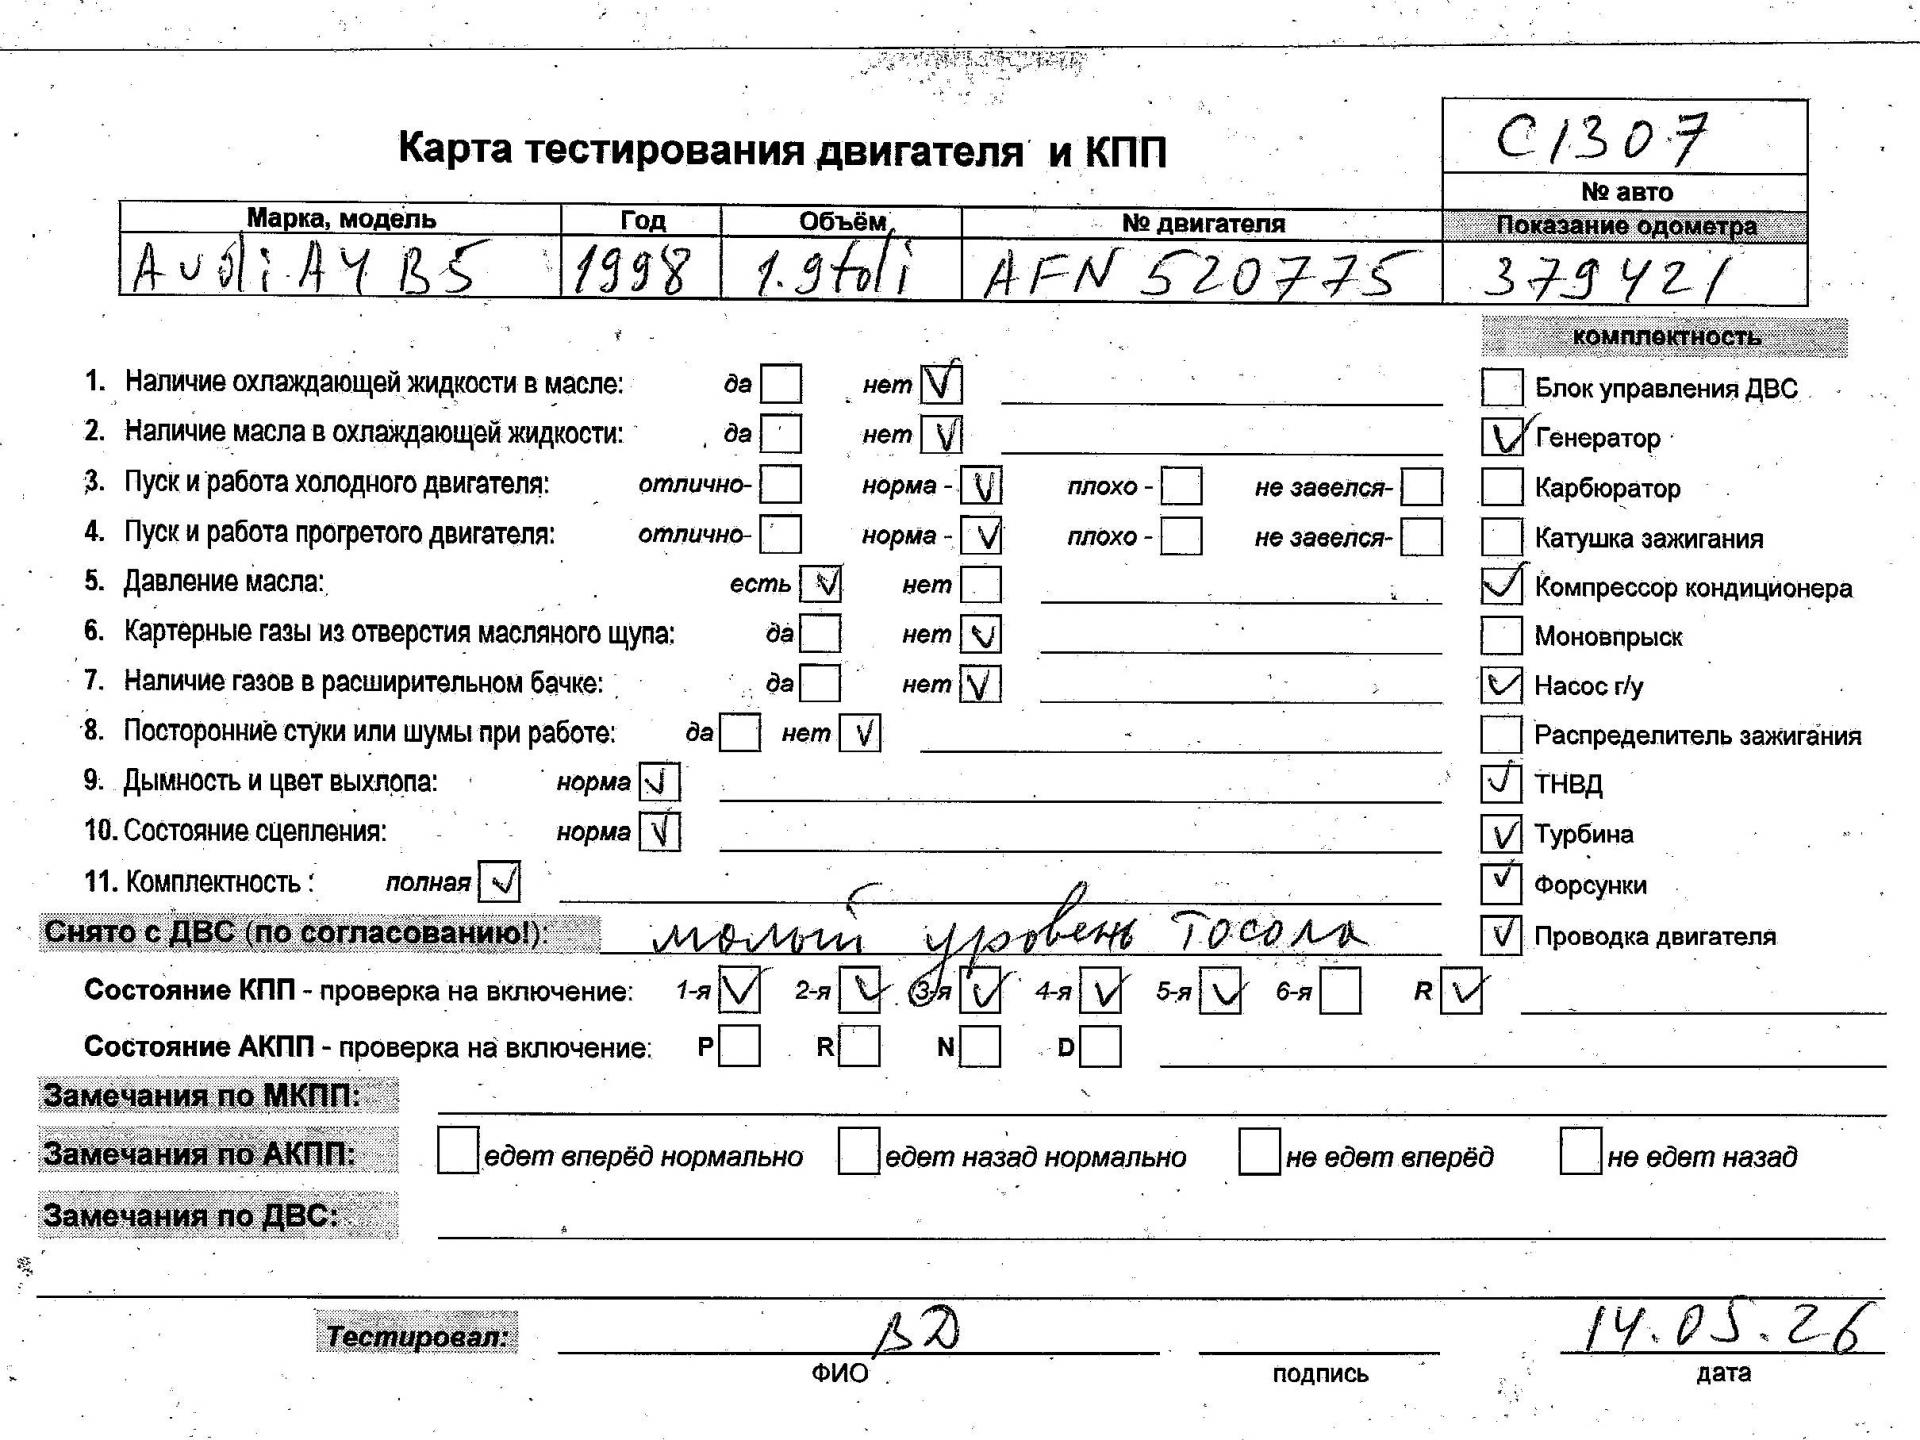 С1307
Карта тестирования двигателя и КПП
№ авто
Марка, модель Год Объём № двигателя Показание одометра
Audi A4 B5 1998 1.9tdi AFN 520775 379421
комплектность
1. Наличие охлаждающей жидкости в масле: да нет Блок управления ДВС
2. Наличие масла в охлаждающей жидкости: да нет Генератор
3. Пуск и работа холодного двигателя: отлично- норма - плохо - не завелся- Карбюратор
4. Пуск и работа прогретого двигателя: отлично- норма - плохо - не завелся- Катушка зажигания
5. Давление масла: есть нет Компрессор кондиционера
6. Картерные газы из отверстия масляного щупа: да нет Моновпрыск
7. Наличие газов в расширительном бачке: да нет Насос г/у
8. Посторонние стуки или шумы при работе: да нет Распределитель зажигания
9. Дымность и цвет выхлопа: норма ТНВД
10. Состояние сцепления: норма Турбина
11. Комплектность : полная Форсунки
Снято с ДВС (по согласованию!): малый уровень Тосола Проводка двигателя
Состояние КПП - проверка на включение: 1-я 2-я 3-я 4-я 5-я 6-я R
Состояние АКПП - проверка на включение: P R N D
Замечания по МКПП:
Замечания по АКПП: едет вперёд нормально едет назад нормально не едет вперёд не едет назад
Замечания по ДВС:
Тестировал: ВД 14.05.26
ФИО подпись дата